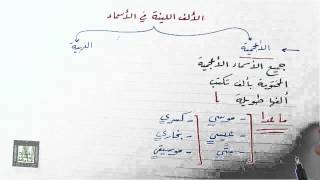 الألف اللينة في الأسماء
الأعجمية
العربية
جميع الأسماء الأعجمية
المحتوية بألف تكتب
ألفها طويلة ا
ما عدا
- موسى - كسرى
- عيسى - بخارى
- متَّى - موسيقى